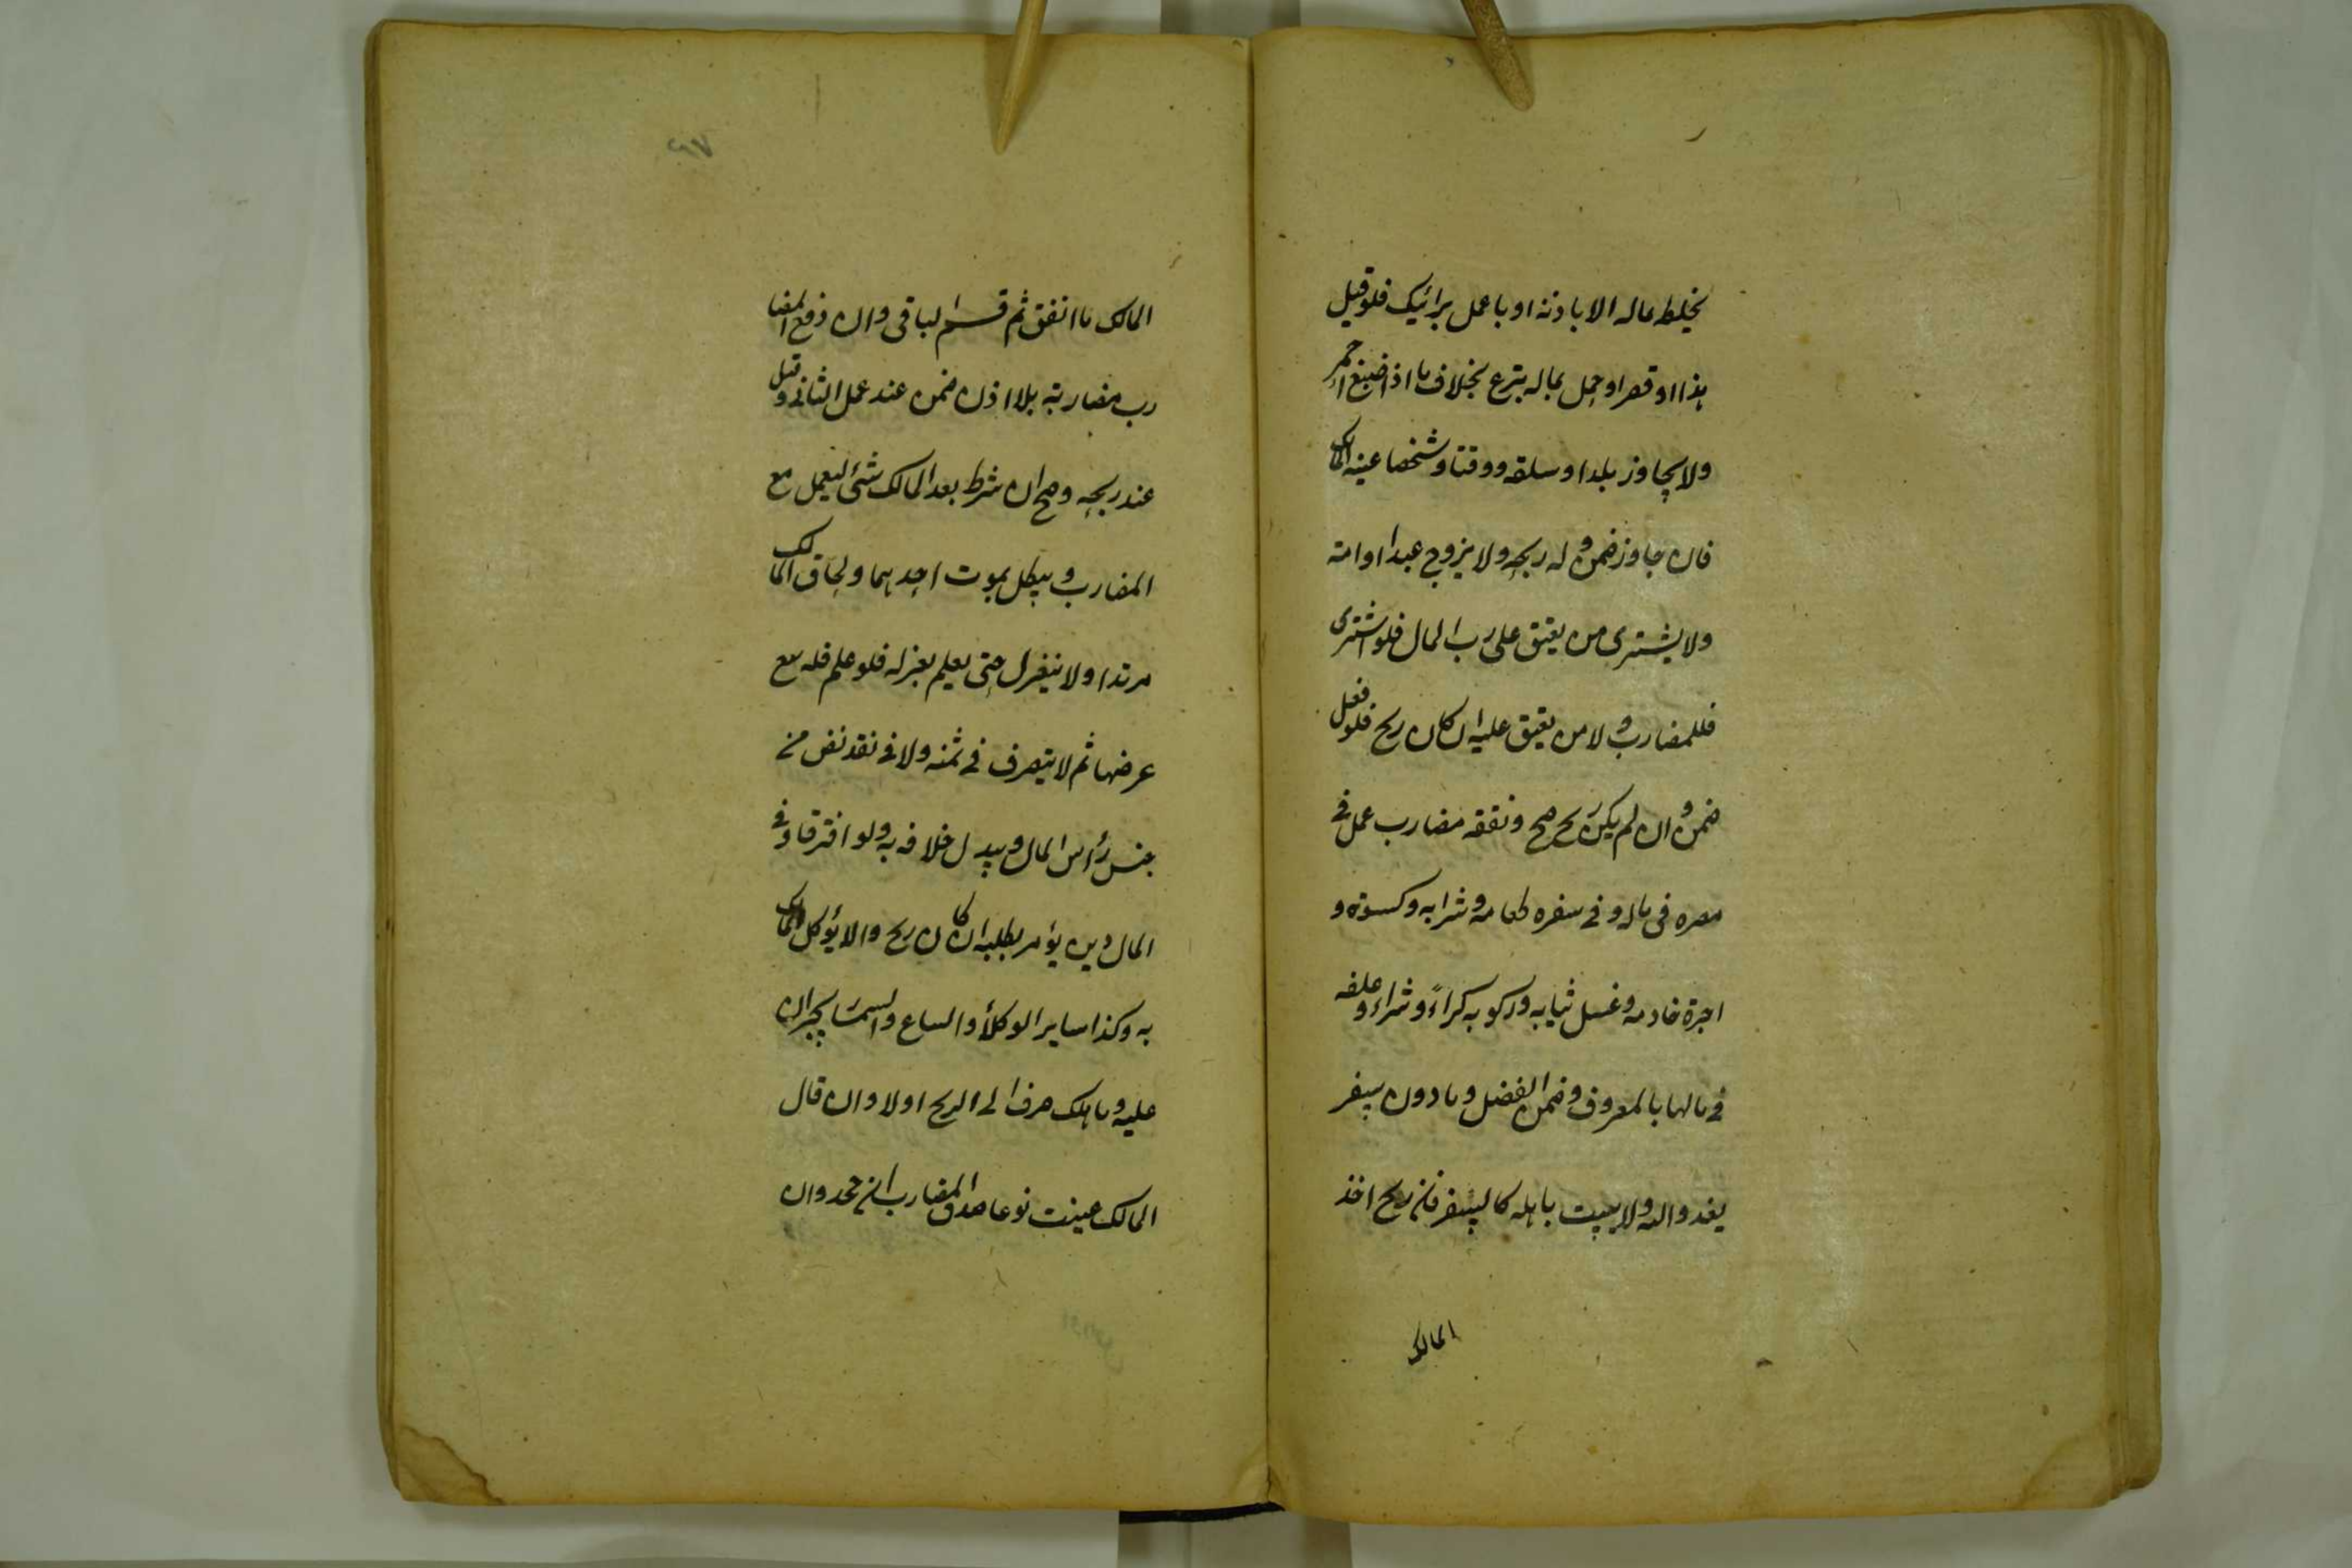 يخلط بماله الا باذنه او باعمل برائيك فلو قيل
هذا او قصر او حمل بماله تبرع بخلاف ما اذا صبغ احمر
ولا يجاوز بلدا وسلعة ووقتا وشخصا عينه المالك
فان جاوز ضمن وله ربحه ولا يزوج عبدا او امة
ولا يشترى من يعتق على رب المال فلو اشترى
فللمضارب ولا من يعتق عليه ان كان ربح فلو فعل
ضمن وان لم يكن ربح صح ونفقة مضارب عمل في
مصره فى ماله وفي سفره طعامه وشرابه وكسوته و
اجرة خادمه وغسل ثيابه وركوبه كراءً وشراء وعلفه
في مالها بالمعروف وضمن الفضل وما دون سفر
يغدو اليه ولا يبيت باهله كالسفر فان ربح اخذ
المالك
المالك ما انفق ثم قسم الباقى وان دفع المضا
رب مضاربة بلا اذن ضمن عند عمل الثاني وقيل
عند ربحه وصح ان شرط بعد المالك شئ ليعمل مع
المضارب ويبطل بموت احدهما ولحاق المالك
مرتدا ولا ينعزل حتى يعلم بعزله فلو علم فله بيع
عرضها ثم لا يتصرف في ثمنه ولا في نقد نض من
جنس رأس المال ويبدل خلافه به ولو افترقا وفي
المال دين يؤمر بطلبه ان كان ربح والا يؤكل المالك
به وكذا ساير الوكلأ والبياع والسمسار يجبران
عليه وما هلك صرف الى الربح اولا وان قال
المالك عينت نوعا صدق المضارب ان جحد وان